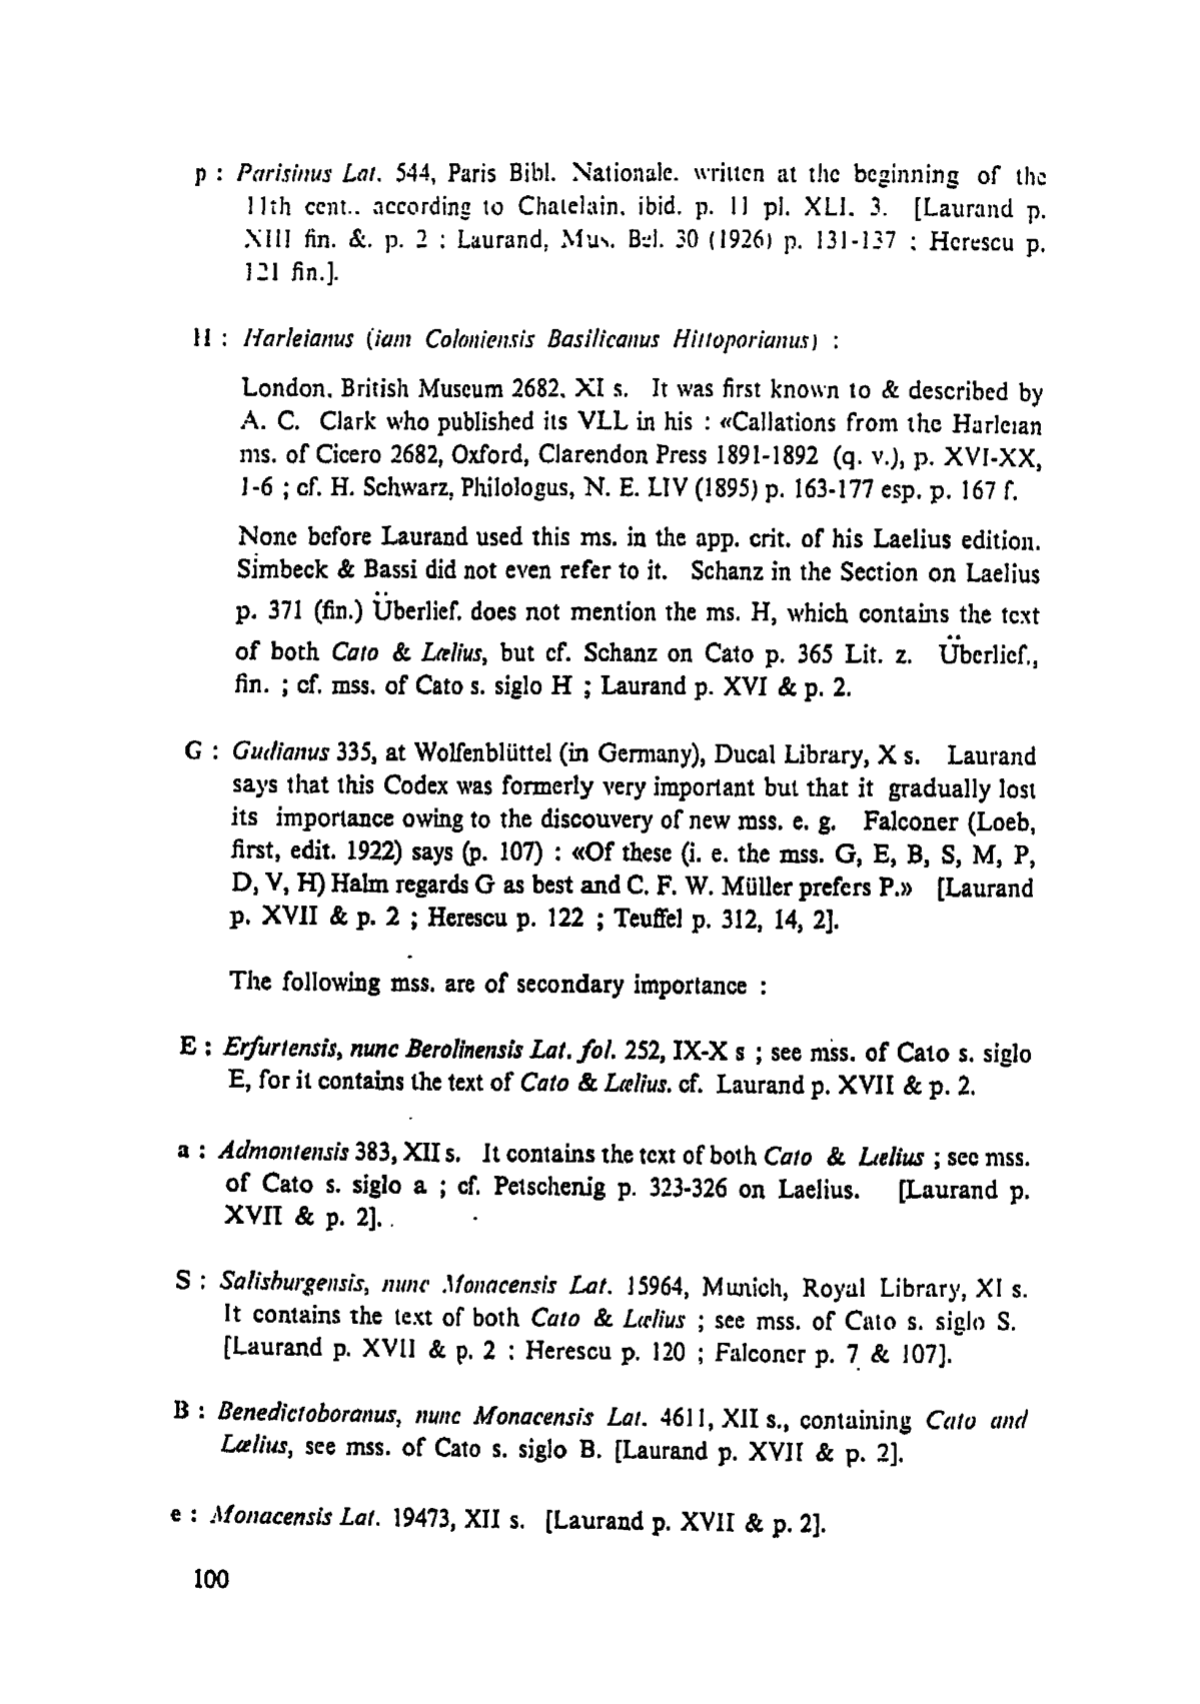 p : Parisinus Lat. 544, Paris Bibl. Nationale. written at the beginning of the
11th cent.. according to Chatelain. ibid. p. 11 pl. XLI. 3. [Laurand p.
XIII fin. &. p. 2 : Laurand, Mus. Bel. 30 (1926) p. 131-137 : Herescu p.
121 fin.].
H : Harleianus (iam Coloniensis Basilicanus Hittoporianus) :
London. British Museum 2682. XI s. It was first known to & described by
A. C. Clark who published its VLL in his : «Callations from the Harleian
ms. of Cicero 2682, Oxford, Clarendon Press 1891-1892 (q. v.), p. XVI-XX,
1-6 ; cf. H. Schwarz, Philologus, N. E. LIV (1895) p. 163-177 esp. p. 167 f.
None before Laurand used this ms. in the app. crit. of his Laelius edition.
Simbeck & Bassi did not even refer to it. Schanz in the Section on Laelius
p. 371 (fin.) Überlief. does not mention the ms. H, which contains the text
of both Cato & Lælius, but cf. Schanz on Cato p. 365 Lit. z. Überlief.,
fin. ; cf. mss. of Cato s. siglo H ; Laurand p. XVI & p. 2.
G : Gudianus 335, at Wolfenblüttel (in Germany), Ducal Library, X s. Laurand
says that this Codex was formerly very important but that it gradually lost
its importance owing to the discouvery of new mss. e. g. Falconer (Loeb,
first, edit. 1922) says (p. 107) : «Of these (i. e. the mss. G, E, B, S, M, P,
D, V, H) Halm regards G as best and C. F. W. Müller prefers P.» [Laurand
p. XVII & p. 2 ; Herescu p. 122 ; Teuffel p. 312, 14, 2].
The following mss. are of secondary importance :
E : Erfurtensis, nunc Berolinensis Lat. fol. 252, IX-X s ; see mss. of Cato s. siglo
E, for it contains the text of Cato & Lælius. cf. Laurand p. XVII & p. 2.
a : Admontensis 383, XII s. It contains the text of both Cato & Lælius ; see mss.
of Cato s. siglo a ; cf. Petschenig p. 323-326 on Laelius. [Laurand p.
XVII & p. 2].
S : Salisburgensis, nunc Monacensis Lat. 15964, Munich, Royal Library, XI s.
It contains the text of both Cato & Lælius ; see mss. of Cato s. siglo S.
[Laurand p. XVII & p. 2 : Herescu p. 120 ; Falconer p. 7 & 107].
B : Benedictoboranus, nunc Monacensis Lat. 4611, XII s., containing Cato and
Lælius, see mss. of Cato s. siglo B. [Laurand p. XVII & p. 2].
e : Monacensis Lat. 19473, XII s. [Laurand p. XVII & p. 2].
100